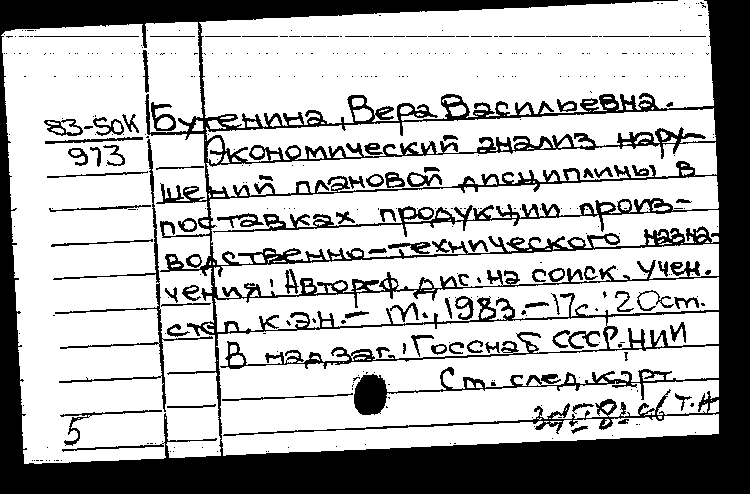 83-50К Бутенина, Вера Васильевна.
973 Экономический анализ нару-
шений плановой дисциплины в
поставках продукции произ-
водственно-технического назна-
чения: Автореф. дис. на соиск. учен.
степ. к.э.н. - М., 1983. - 17с.; 20см.
В надзаг.: Госснаб СССР, НИИ
См. след. карт.
5 Т.А